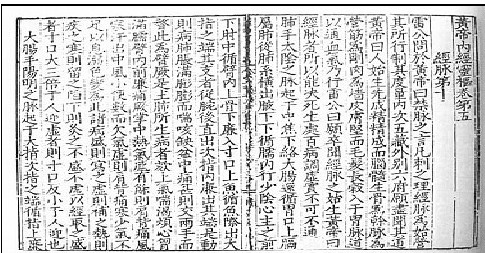 黄帝内經靈樞卷第五
經脉第十
雷公問於黄帝曰禁脉之言凡刺之理經脉爲始營
其所行制其度量内次五藏外别六府願盡聞其道
黄帝曰人始生先成精精成而腦髓生骨爲幹脉爲
營筋爲剛肉爲墻皮膚堅而毛髮長穀入于胃脉道
以通血氣乃行雷公曰願卒聞經脉之始生黄帝曰
經脉者所以能决死生處百病調虛實不可不通
肺手太陰之脉起于中焦下絡大腸還循胃口上膈
屬肺從肺系横出腋下下循臑内行少陰心主之前
下肘中循臂内上骨下廉入寸口上魚循魚際出大
指之端其支者從腕後直出次指内廉出其端是動
則病肺脹滿膨膨而喘咳缺盆中痛甚則交兩手而
瞀此爲臂厥是主肺所生病者咳上氣喘渴煩心胷
滿臑臂内前廉痛厥掌中熱氣盛有餘則肩背痛風
寒汗出中風小便數而欠氣虛則肩背痛寒少氣不
足以息溺色變爲此諸病盛則寫之虛則補之熱則
疾之寒則留之陷下則灸之不盛不虛以經取之盛
者寸口大三倍于人迎虛者則寸口反小于人迎也
大腸手陽明之脉起于大指次指之端循指上廉